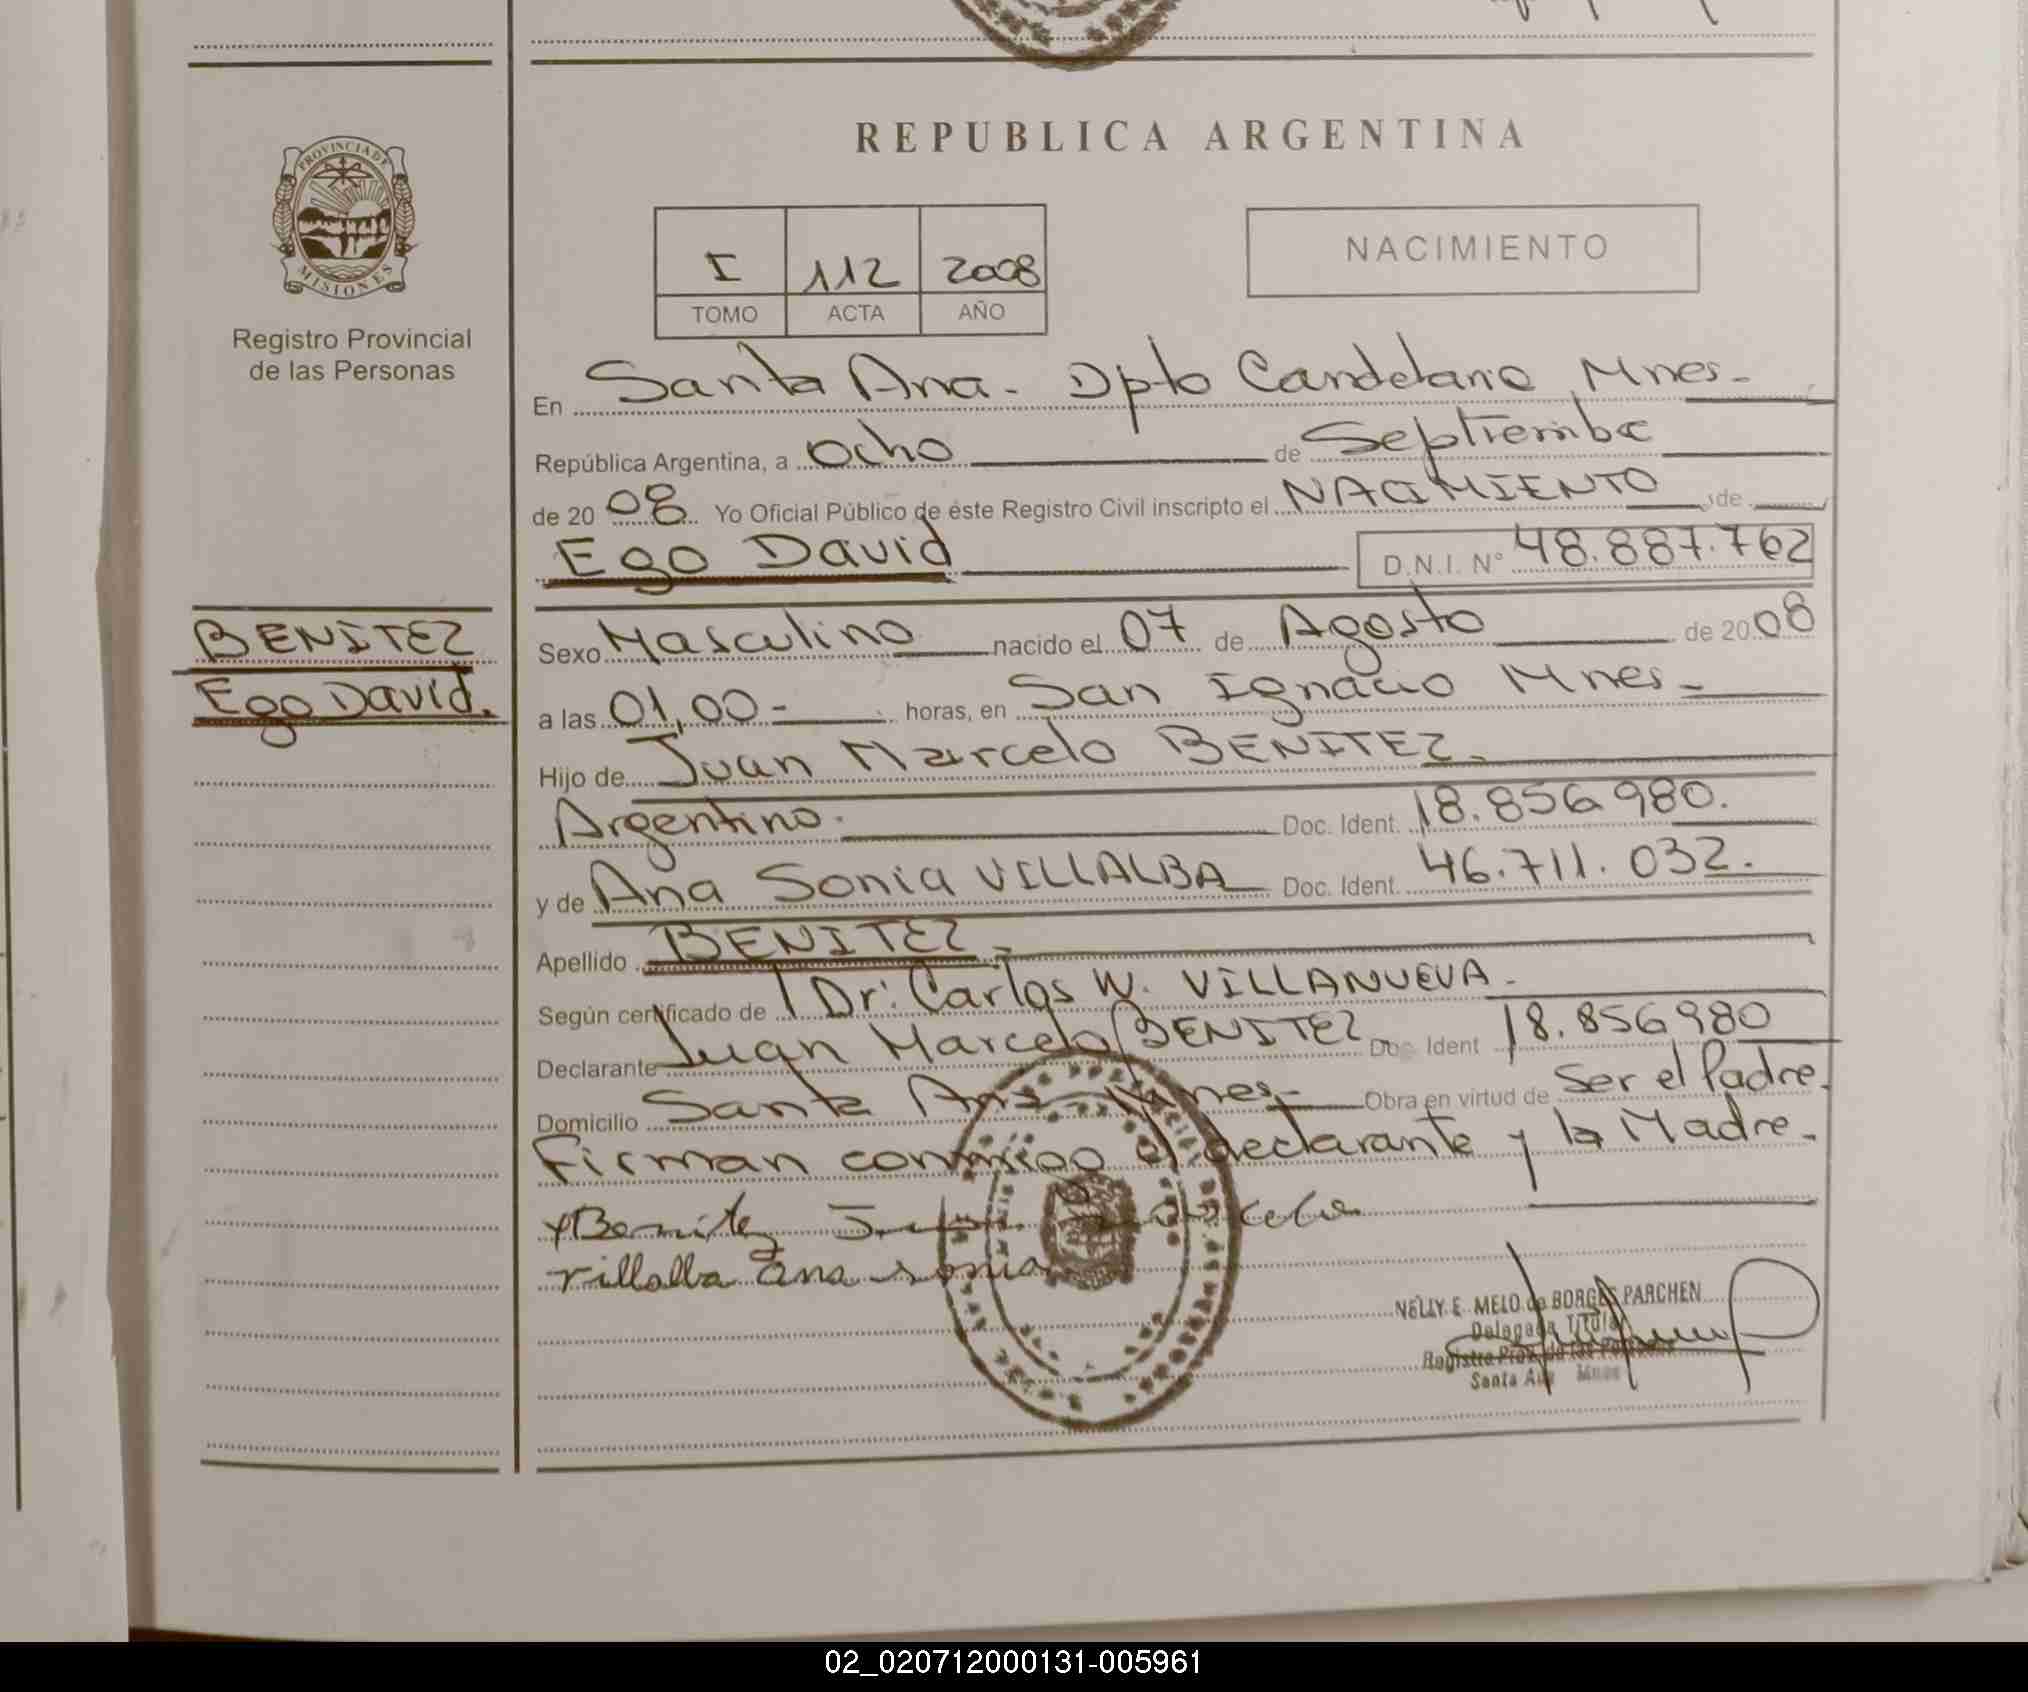 REPUBLICA ARGENTINA
PROVINCIA DE
MISIONES
Registro Provincial
de las Personas
I 112 2008
TOMO ACTA AÑO
NACIMIENTO
En Santa Ana - Dpto Candelaria Mnes -
República Argentina, a Ocho de Septiembre
de 2008 Yo Oficial Público de éste Registro Civil inscripto el NACIMIENTO de
Ego David D.N.I. N° 48.887.762
BENITEZ
Ego David.
Sexo Masculino nacido el 07 de Agosto de 2008
a las 01,00 - horas, en San Ignacio Mnes -
Hijo de Juan Marcelo BENITEZ -
Argentino. Doc. Ident. 18.856980.
y de Ana Sonia VILLALBA Doc. Ident. 46.711.032.
Apellido BENITEZ -
Según certificado de Dr: Carlos W. VILLANUEVA -
Declarante Juan Marcelo BENITEZ Doc. Ident 18.856980
Domicilio Santa Ana Mnes - Obra en virtud de Ser el Padre.
Firman conmigo el declarante y la Madre.
Benitez Marcelo
Villalba Ana Sonia
NELLY E. MELO de BORGES PARCHEN
Delegada Titular
Registro Prov. de las Personas
Santa Ana Mnes
02_020712000131-005961